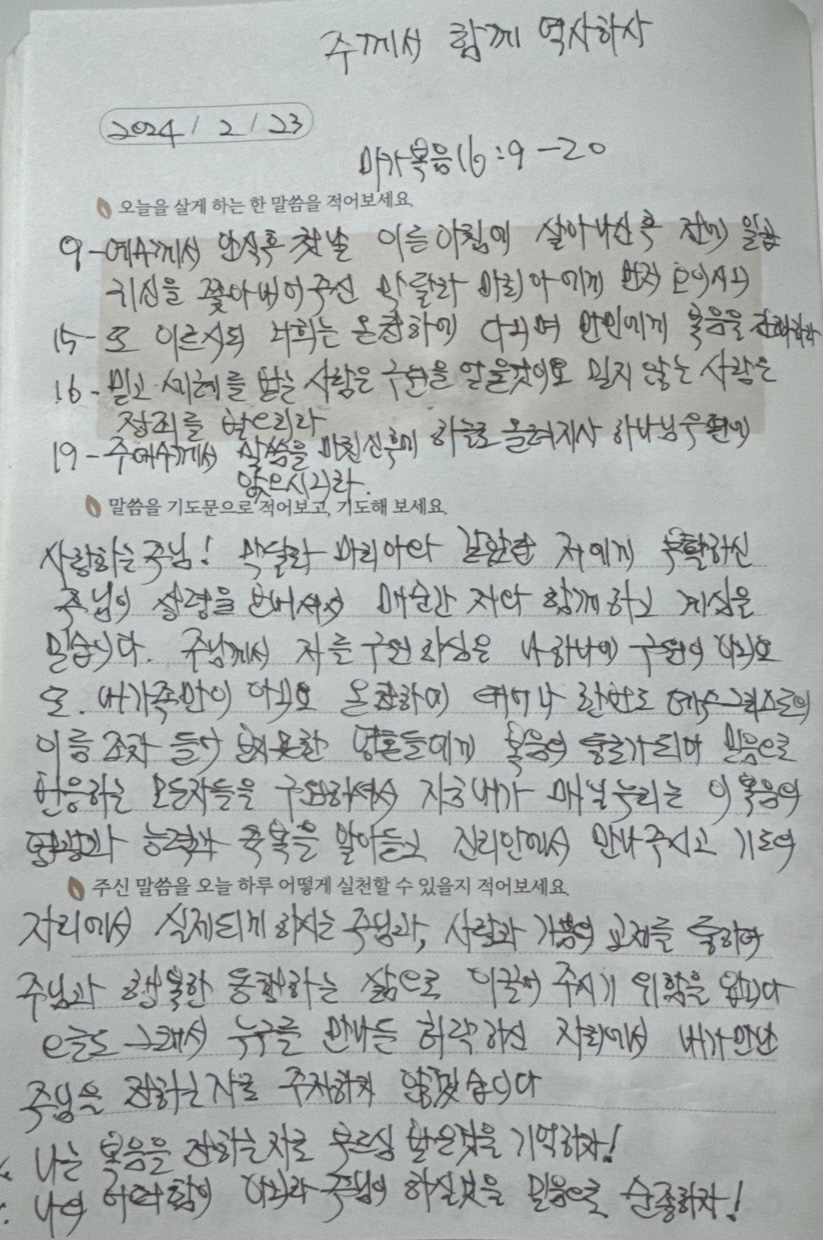 주께서 함께 역사하사
2024 / 2 / 23
마가복음 16:9-20
오늘을 살게 하는 한 말씀을 적어보세요.
9-예수께서 안식후 첫날 이른 아침에 살아나신 후 전에 일곱
귀신을 쫓아내어 주신 막달라 마리아에게 먼저 보이시니
15- 또 이르시되 너희는 온천하에 다니며 만민에게 복음을 전파하라
16- 믿고 세례를 받는 사람은 구원을 얻을것이요 믿지 않는 사람은
정죄를 받으리라
19- 주예수께서 말씀을 마치신후에 하늘로 올려지사 하나님 우편에
앉으시니라.
말씀을 기도문으로 적어보고, 기도해 보세요.
사랑하는 주님! 막달라 마리아와 같았던 저에게 부활하신
주님의 성령을 보내셔서 매순간 저와 함께하고 계심을
믿습니다. 주님께서 저를 구원하심은 나 하나의 구원이 아니요
또. 내가족만이 아니요 온천하에 예수그리스도의
이름 조차 듣지 못한 영혼들에게 복음의 통로가 되어 믿음으로
반응하는 모든자들을 구원하셔서 지금 내가 매일 누리는 이 복음의
영광과 능력과 축복을 알아듣고 진리안에서 만나주시고 기도의
주신 말씀을 오늘 하루 어떻게 실천할 수 있을지 적어보세요.
자리에서 실제되게 하시는 주님과, 사랑과 기쁨의 교제를 통하여
주님과 행복한 동행하는 삶으로 이끌어 주시기 위함을 압니다
오늘도 그래서 누구를 만나든 허락하신 자리에서 내가 만난
주님을 전하는 자로 주저하지 않겠습니다
나는 복음을 전하는 자로 부르심 받은것을 기억하자!
나의 어떠함이 아니라 주님이 하실것을 믿음으로 순종하자!